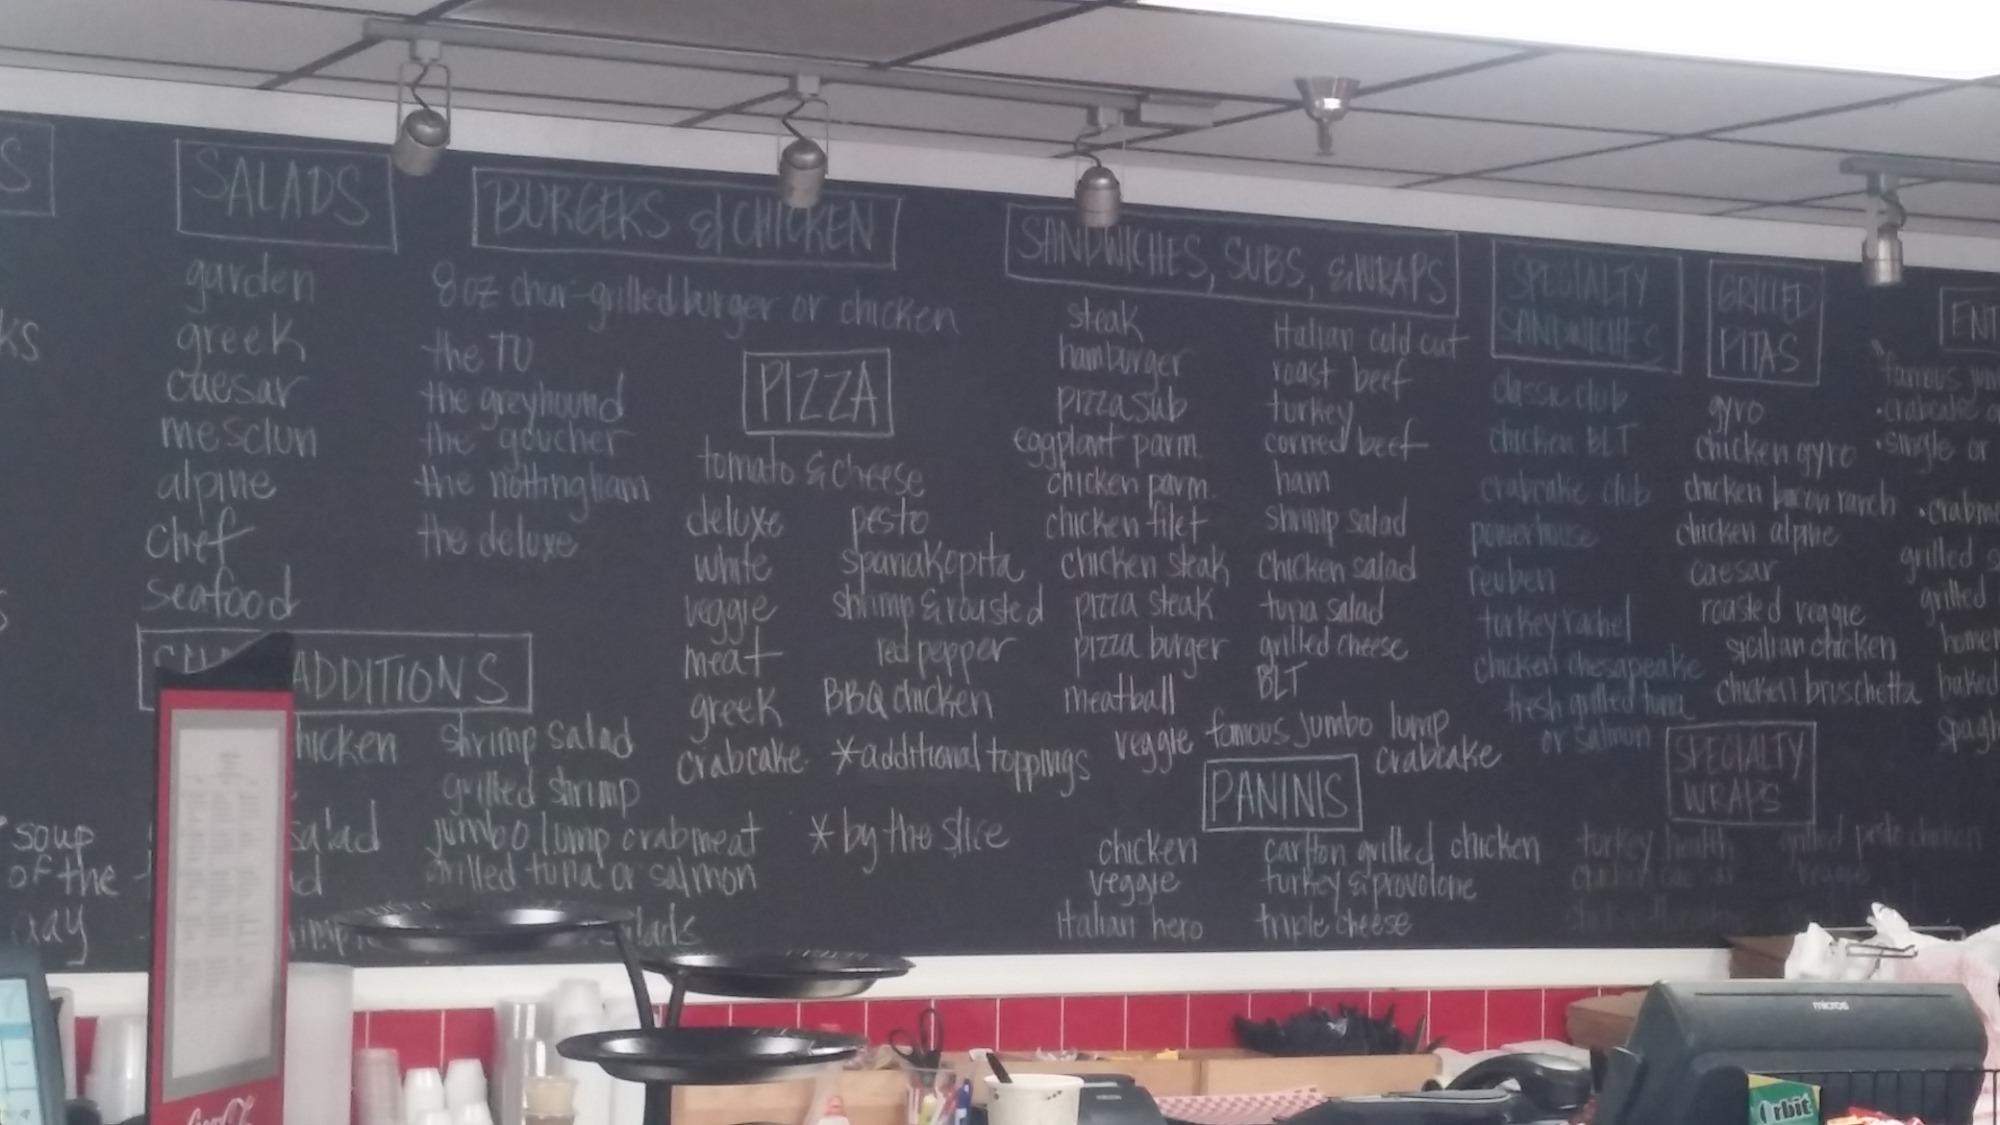 S
KS
S
soup
of the
day
SALADS
garden
greek
caesar
mesclun
alpine
chef
seafood
ADDITIONS
hicken
salad
shrimp salad
grilled shrimp
jumbo lump crabmeat
grilled tuna or salmon
BURGERS & CHICKEN
8 oz char-grilled burger or chicken
the TU
the greyhound
the goucher
the nottingham
the deluxe
PIZZA
tomato & cheese
deluxe
white
veggie
meat
greek
crabcake
pesto
spanakopita
shrimp & roasted
red pepper
BBQ chicken
*additional toppings
*by the slice
SANDWICHES, SUBS, & WRAPS
steak
hamburger
pizza sub
eggplant parm.
chicken parm.
chicken filet
chicken steak
pizza steak
pizza burger
meatball
veggie
italian cold cut
roast beef
turkey
corned beef
ham
shrimp salad
chicken salad
tuna salad
grilled cheese
BLT
famous jumbo lump
crabcake
PANINIS
chicken
veggie
italian hero
carlton grilled chicken
turkey & provolone
triple cheese
SPECIALTY
SANDWICHES
classic club
chicken BLT
crabcake club
powerhouse
reuben
turkey rachel
chicken chesapeake
fresh grilled tuna
or salmon
GRILLED
PITAS
gyro
chicken gyro
chicken bacon ranch
chicken alpine
caesar
roasted veggie
sicilian chicken
chicken bruschetta
SPECIALTY
WRAPS
turkey health
chicken caesar
grilled pesto chicken
veggie
ENT
famous jum
•crabcake
•single or
•crabme
grilled s
grilled
homem
baked
spagh
Coca-Cola
micros
Orbit